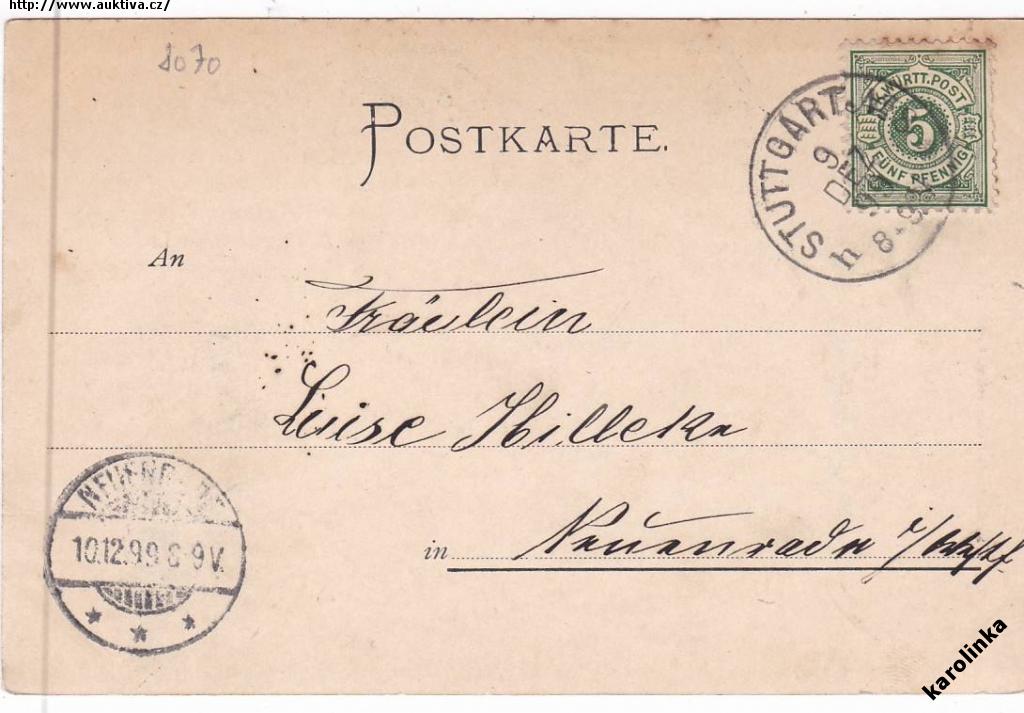 http://www.auktiva.cz/
8070
K. WÜRTT. POST
5
FÜNF PFENNIG
STUTTGART
9
DEZ
8-9
h
POSTKARTE.
An
Fräulein
Luise Hilleke
in Neuenrade i/Westf
10.12.99 8-9V.
karolinka